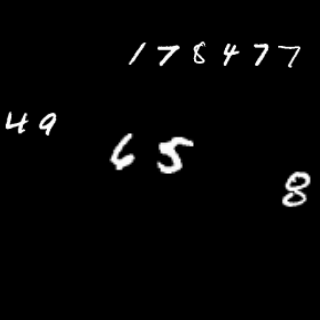 178477
49
65
8